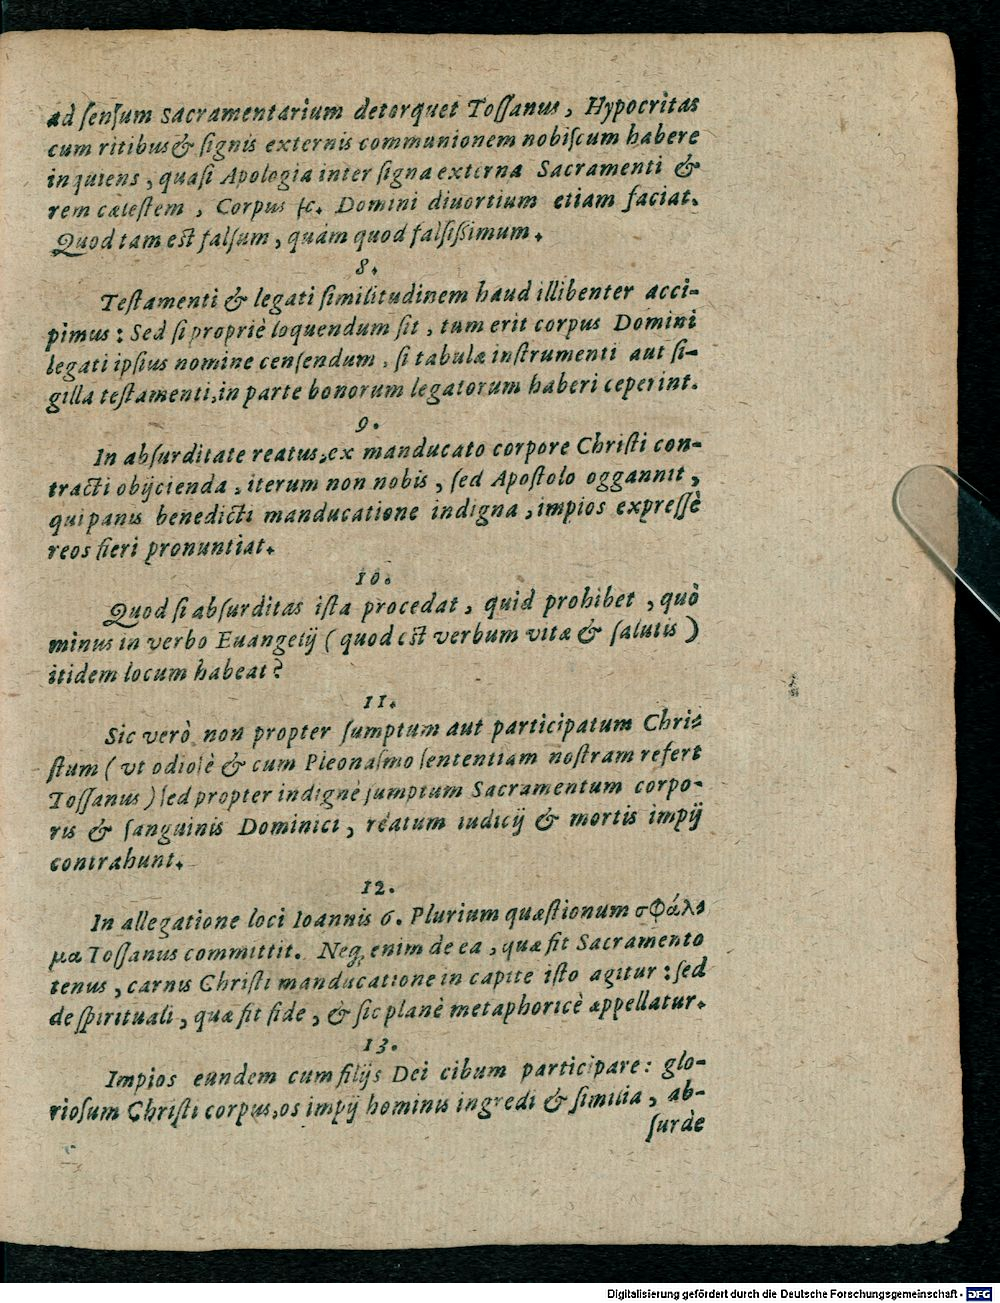 ad ſenſum Sacramentarium detorquet Toſſanus, Hypocritas
cum ritibus & ſignis externis communionem nobiſcum habere
inquiens, quaſi Apologia inter ſigna externa Sacramenti &
rem cæleſtem, Corpus ſc. Domini diuortium etiam faciat.
Quod tam eſt falſum, quàm quod falſiſsimum.
8.
Teſtamenti & legati ſimilitudinem haud illibenter acci-
pimus: Sed ſi propriè loquendum ſit, tum erit corpus Domini
legati ipſius nomine cenſendum, ſi tabulæ inſtrumenti aut ſi-
gilla teſtamenti, in parte bonorum legatorum haberi ceperint.
9.
In abſurditate reatus, ex manducato corpore Chriſti con-
tracti obijcienda, iterum non nobis, ſed Apoſtolo oggannit,
qui panis benedicti manducatione indigna, impios expreſſè
reos fieri pronuntiat.
10.
Quod ſi abſurditas iſta procedat, quid prohibet, quò
minus in verbo Euangelij (quod eſt verbum vitæ & ſalutis)
itidem locum habeat?
11.
Sic verò non propter ſumptum aut participatum Chri-
ſtum (vt odioſè & cum Pleonaſmo ſententiam noſtram refert
Toſſanus) ſed propter indignè ſumptum Sacramentum corpo-
ris & ſanguinis Dominici, reatum iudicij & mortis impij
contrahunt.
12.
In allegatione loci Ioannis 6. Plurium quæſtionum σφάλ
μα Toſſanus committit. Neq; enim de ea, quæ fit Sacramento
tenus, carnis Chriſti manducatione in capite iſto agitur: ſed
de ſpirituali, quæ fit fide, & ſic planè metaphoricè appellatur.
13.
Impios eundem cum filijs Dei cibum participare: glo-
rioſum Chriſti corpus, os impij hominis ingredi & ſimilia, ab-
ſurdè
Digitalisierung gefördert durch die Deutsche Forschungsgemeinschaft - DFG